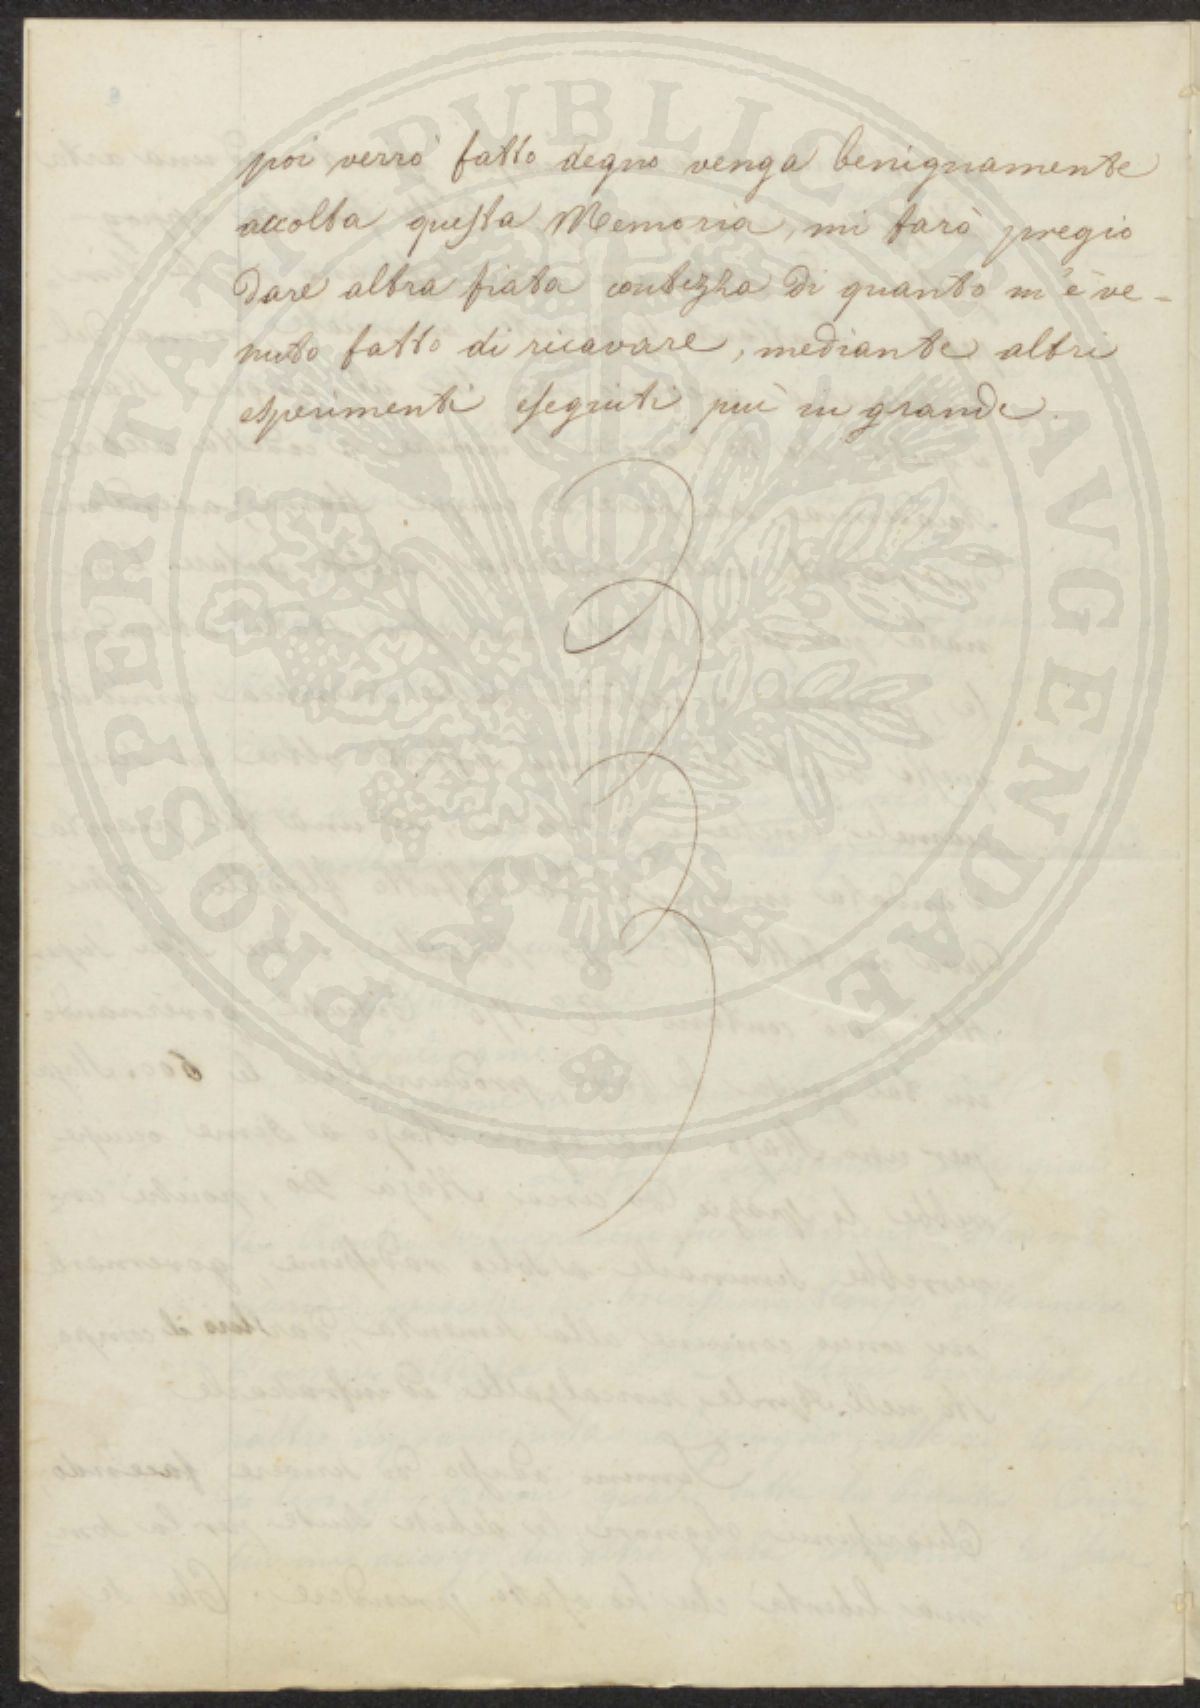 poi verrò fatto degno venga benignamente
accolta questa Memoria, mi farò pregio
dare altra fiata contezza di quanto m'è ve-
nuto fatto di ricavare, mediante altri
esperimenti eseguiti più in grande.
PROSPERITATI PUBLICAE AVGENDAE